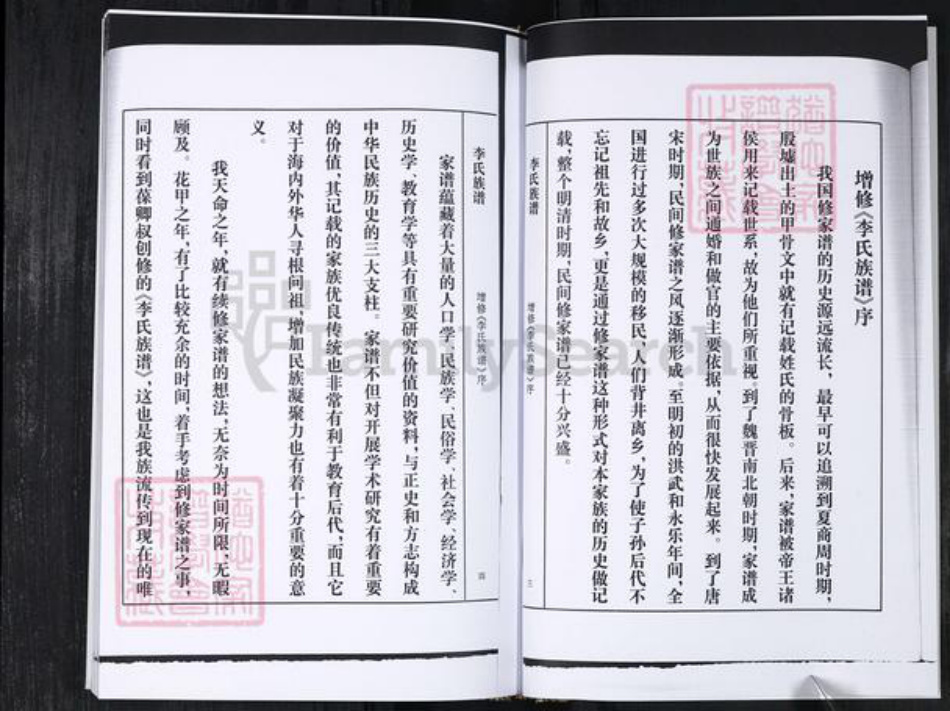 增修《李氏族谱》序
我国修家谱的历史源远流长，最早可以追溯到夏商周时期，
殷墟出土的甲骨文中就有记载姓氏的骨板。后来，家谱被帝王诸
侯用来记载世系，故为他们所重视。到了魏晋南北朝时期，家谱成
为世族之间通婚和做官的主要依据，从而很快发展起来。到了唐
宋时期，民间修家谱之风逐渐形成。至明初的洪武和永乐年间，全
国进行过多次大规模的移民，人们背井离乡，为了使子孙后代不
忘记祖先和故乡，更是通过修家谱这种形式对本家族的历史做记
载，整个明清时期，民间修家谱已经十分兴盛。
李氏族谱
增修《李氏族谱》序
三
李氏族谱
增修《李氏族谱》序
四
家谱蕴藏着大量的人口学、民族学、民俗学、社会学、经济学、
历史学、教育学等具有重要研究价值的资料，与正史和方志构成
中华民族历史的三大支柱。家谱不但对开展学术研究有着重要
的价值，其记载的家族优良传统也非常有利于教育后代，而且它
对于海内外华人寻根问祖，增加民族凝聚力也有着十分重要的意
义。
我天命之年，就有续修家谱的想法，无奈为时间所限，无暇
顾及。花甲之年，有了比较充余的时间，着手考虑到修家谱之事，
同时看到葆卿叔创修的《李氏族谱》，这也是我族流传到现在的唯
FamilySearch